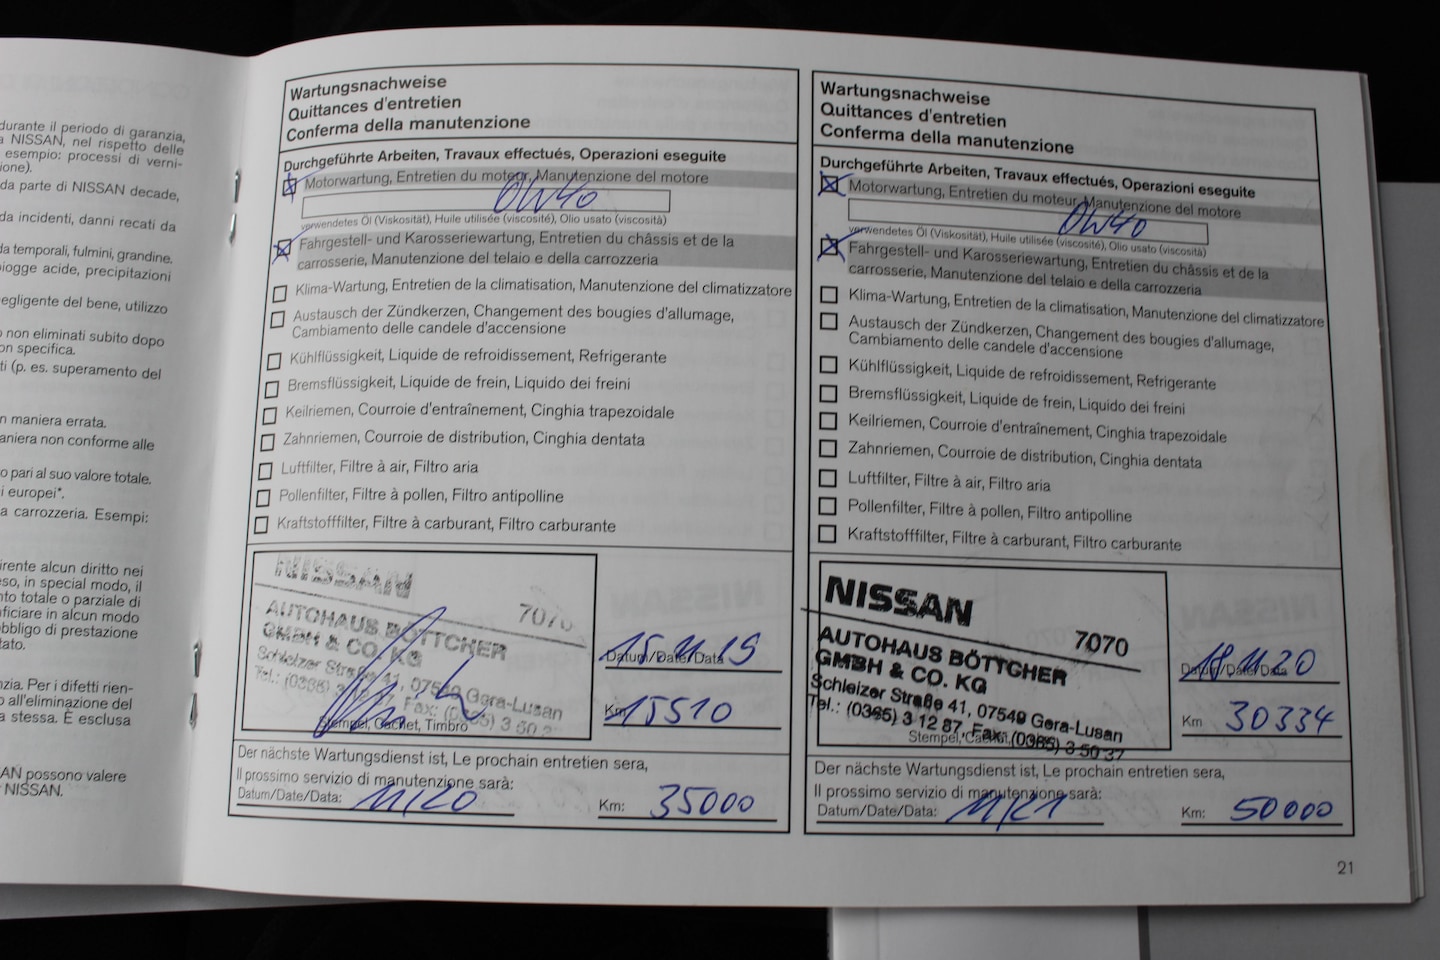 durante il periodo di garanzia,
NISSAN, nel rispetto delle
esempio: processi di verni-
ione).
da parte di NISSAN decade,
da incidenti, danni recati da
da temporali, fulmini, grandine.
piogge acide, precipitazioni
negligente del bene, utilizzo
non eliminati subito dopo
on specifica.
ti (p. es. superamento del
n maniera errata.
aniera non conforme alle
o pari al suo valore totale.
i europei*.
a carrozzeria. Esempi:
irente alcun diritto nei
eso, in special modo, il
nto totale o parziale di
ficiare in alcun modo
bbligo di prestazione
tato.
nzia. Per i difetti rien-
o all'eliminazione del
a stessa. È esclusa
AN possono valere
NISSAN.
Wartungsnachweise
Quittances d'entretien
Conferma della manutenzione
Durchgeführte Arbeiten, Travaux effectués, Operazioni eseguite
Motorwartung, Entretien du moteur, Manutenzione del motore
0W40
verwendetes Öl (Viskosität), Huile utilisée (viscosité), Olio usato (viscosità)
Fahrgestell- und Karosseriewartung, Entretien du châssis et de la
carrosserie, Manutenzione del telaio e della carrozzeria
Klima-Wartung, Entretien de la climatisation, Manutenzione del climatizzatore
Austausch der Zündkerzen, Changement des bougies d'allumage,
Cambiamento delle candele d'accensione
Kühlflüssigkeit, Liquide de refroidissement, Refrigerante
Bremsflüssigkeit, Liquide de frein, Liquido dei freini
Keilriemen, Courroie d'entraînement, Cinghia trapezoidale
Zahnriemen, Courroie de distribution, Cinghia dentata
Luftfilter, Filtre à air, Filtro aria
Pollenfilter, Filtre à pollen, Filtro antipolline
Kraftstofffilter, Filtre à carburant, Filtro carburante
NISSAN
7070
AUTOHAUS BÖTTCHER
GMBH & CO. KG
Schleizer Straße 41, 07549 Gera-Lusan
Tel.: (0365) 3 12 87, Fax: (0365) 3 50 37
Stempel, Cachet, Timbro
15.11.19
Datum/Date/Data
Km 15510
Der nächste Wartungsdienst ist, Le prochain entretien sera,
Il prossimo servizio di manutenzione sarà:
Datum/Date/Data: 11/20 Km: 35000
Wartungsnachweise
Quittances d'entretien
Conferma della manutenzione
Durchgeführte Arbeiten, Travaux effectués, Operazioni eseguite
Motorwartung, Entretien du moteur, Manutenzione del motore
0W40
verwendetes Öl (Viskosität), Huile utilisée (viscosité), Olio usato (viscosità)
Fahrgestell- und Karosseriewartung, Entretien du châssis et de la
carrosserie, Manutenzione del telaio e della carrozzeria
Klima-Wartung, Entretien de la climatisation, Manutenzione del climatizzatore
Austausch der Zündkerzen, Changement des bougies d'allumage,
Cambiamento delle candele d'accensione
Kühlflüssigkeit, Liquide de refroidissement, Refrigerante
Bremsflüssigkeit, Liquide de frein, Liquido dei freini
Keilriemen, Courroie d'entraînement, Cinghia trapezoidale
Zahnriemen, Courroie de distribution, Cinghia dentata
Luftfilter, Filtre à air, Filtro aria
Pollenfilter, Filtre à pollen, Filtro antipolline
Kraftstofffilter, Filtre à carburant, Filtro carburante
NISSAN
7070
AUTOHAUS BÖTTCHER
GMBH & CO. KG
Schleizer Straße 41, 07549 Gera-Lusan
Tel.: (0365) 3 12 87, Fax: (0365) 3 50 37
Stempel, Cachet
18.11.20
Datum/Date/Data
Km 30334
Der nächste Wartungsdienst ist, Le prochain entretien sera,
Il prossimo servizio di manutenzione sarà:
Datum/Date/Data: 11/21 Km: 50000
21